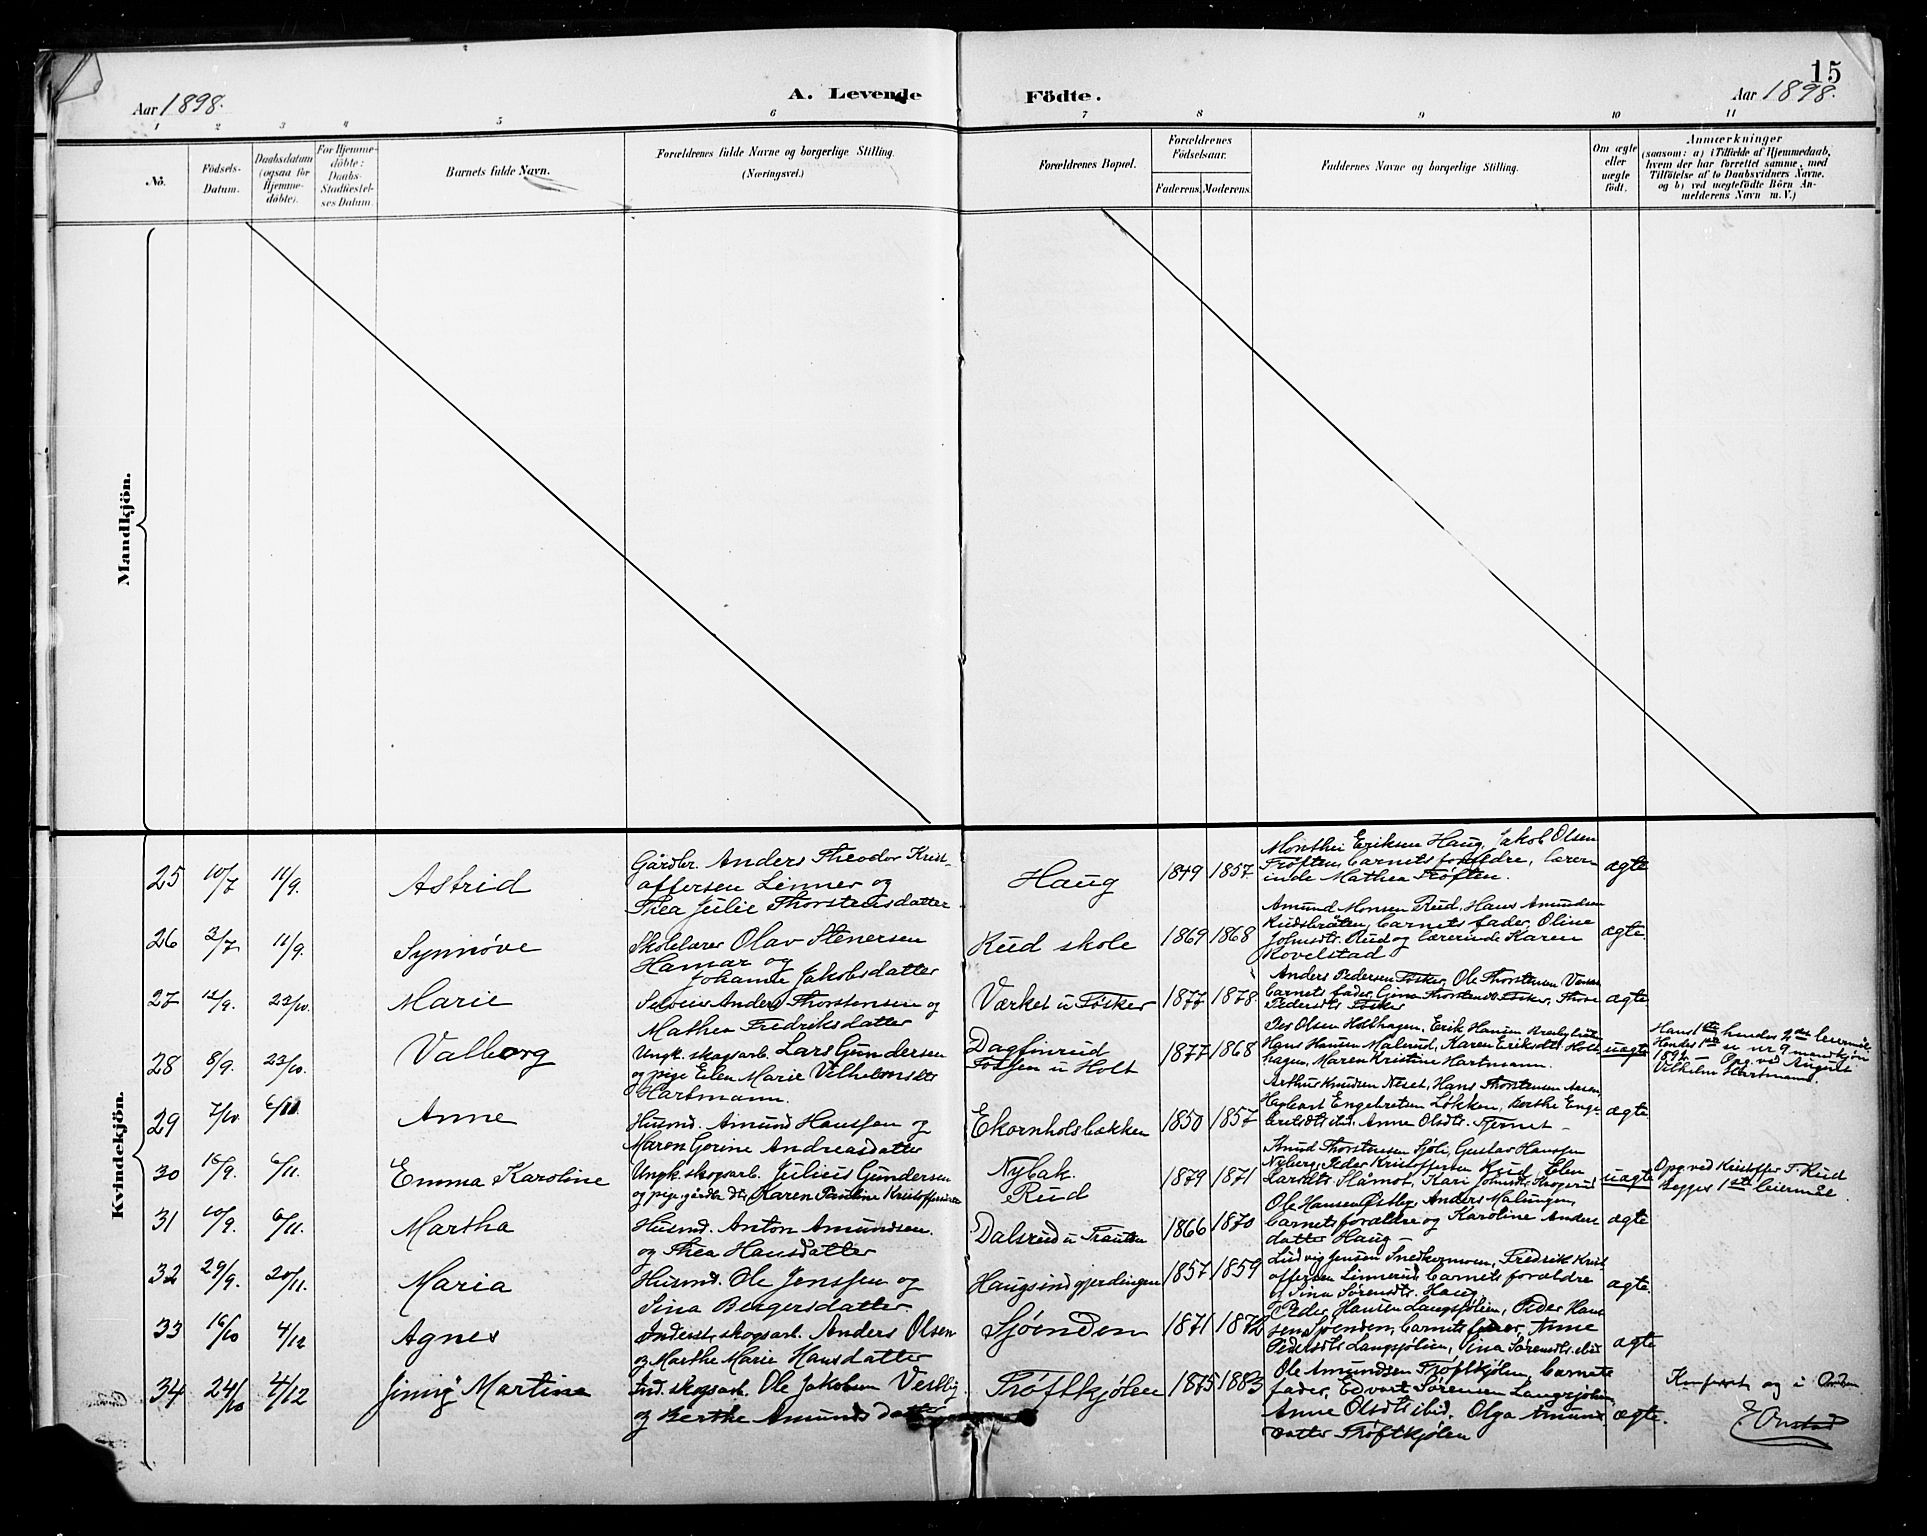 15
Aar 1898.
A. Levende Födte.
Aar 1898.
1 2 3 4 5 6 7 8 9 10 11
No.
Födsels-
Datum.
Daabsdatum
(ogsaa for
Hjemme-
döbte).
For Hjemme-
döbte:
Daabs-
Stadfæstel-
ses Datum.
Barnets fulde Navn.
Forældrenes fulde Navne og borgerlige Stilling.
(Næringsvei.)
Forældrenes Bopæl.
Forældrenes
Födselsaar.
Faderens. Moderens.
Faddernes Navne og borgerlige Stilling.
Om ægte
eller
uægte
födt.
Anmærkninger
(saasom: a) i Tilfælde af Hjemmedaab,
hvem der har forrettet samme, med
Tilföielse af to Daabsvidners Navne.
og b) ved uægtefödte Börn An-
melderens Navn m. V.)
Mandkjön.
Kvindekjön.
25 10/7 11/9. Astrid
Gårdbr. Anders Theodor Krist-
offersen Linner og
Thea Julie Thorstensdatter
Haug 1849 1857.
Monthei Eriksen Haug, Jakob Olsen
Trøften, barnets forældre, lærer
inde Mathea Trøften.
ægte
26 2/7 11/9. Synnøve
Skolelærer Olav Stenersen
Hamar og
Johanne Jakobsdatter
Rud skole 1869 1868
Amund Monsen Rud, Hans Amundsen
Rudsbråten, barnets fader, Oline
Johnsdtr. Rud og lærerinde Karen
Hovelstad
ægte.
27 12/9. 23/10. Marie
Anders Thorstensen og
Mathea Fredriksdatter
Værket u Fosker 1877 1878
Anders Pedersen Fosker, Ole Thorstensen
barnets fader,
Pedersdtr. Fosker
ægte
28 8/9. 23/10. Valborg
Ungk. skogsarb. Lars Gundersen
og pige Elen Marie Vilhelmsdtr
Hartmann.
Dagfinrud
Fossen u Holt 1877 1868
Per Olsen Holthagen, Erik Hansen
Hans Hansen Malerud, Karen Eriksdtr Holt
hagen, Maren Kristine Hartmann.
uægte
Hans 1ste hendes 2det leiermål
Hendes 1ste u nr 9 mandkjøn
1892 – Opg. ved August
Vilhelm Hartmann.
29 7/10 6/11. Anne
Husmd. Amund Hanssen og
Maren Gorine Andreasdatter
Ekornholsbakken 1850 1857
Arthur Knudsen Neset, Hans Thorstensen Aasen,
Engebretsen Løkken, Berthe Enge-
bretsdtr ibid. Anne Olsdtr. Tjernet –
ægte
30 16/9. 6/11. Emma Karoline
Ungk. skogsarb. Julius Gundersen
og pige gårdbr dtr Karen Pauline Kristoffersen
Nybak.
Rud 1879 1871
Knud Thorstensen Sjøli, Gustav Hanssen
Nyberg, Peder Kristoffersen Rud, Elen
Larsdtr Slåmot, Kari Johnsdtr
uægte
Opg. ved Kristoffer T. Rud
Begges 1ste leiermål.
31 10/9. 6/11. Martha
Husmd. Anton Amundsen.
og Thea Hansdatter
Dalsrud u 1866 1870
Ole Hansen Østby, Anders Malungen,
barnets forældre og Karoline Anders
datter Haug –
ægte
32 29/9. 20/11. Maria
Husmd. Ole Jenssen og
Sina Bergersdatter
Haugsindgjerdingen 1857 1859
Ludvig Jensen Snedkermoen, Fredrik Krist
offersen Linnerud, barnets forældre
og Sina Sørensdtr. Haug
ægte.
33 16/10 4/12 Agnes
Inderst, skogsarb. Anders Olsen
og Marthe Marie Hansdatter
Sjøenden 1871 1872
Peder Hansen Langsjølien, Peder Han
sen Sjøenden, barnets fader, Anne
Pedersdtr Langsjølien, Sina Sørensdtr. ibid
ægte
34 24/10 4/12 Jenny Martine
Ind. skogsarb. Ole Jakobsen Vestby
og Berthe Amundsdatter
Trøftkjølen 1875 1883
Ole Amundsen Trøftkjølen, barnets
fader, Edvart Sørensen Langsjølien,
Anne Olsdtr ibid. Olga Amunds
datter Trøftkjølen
ægte.
Konfereret og i Orden
E Onstad